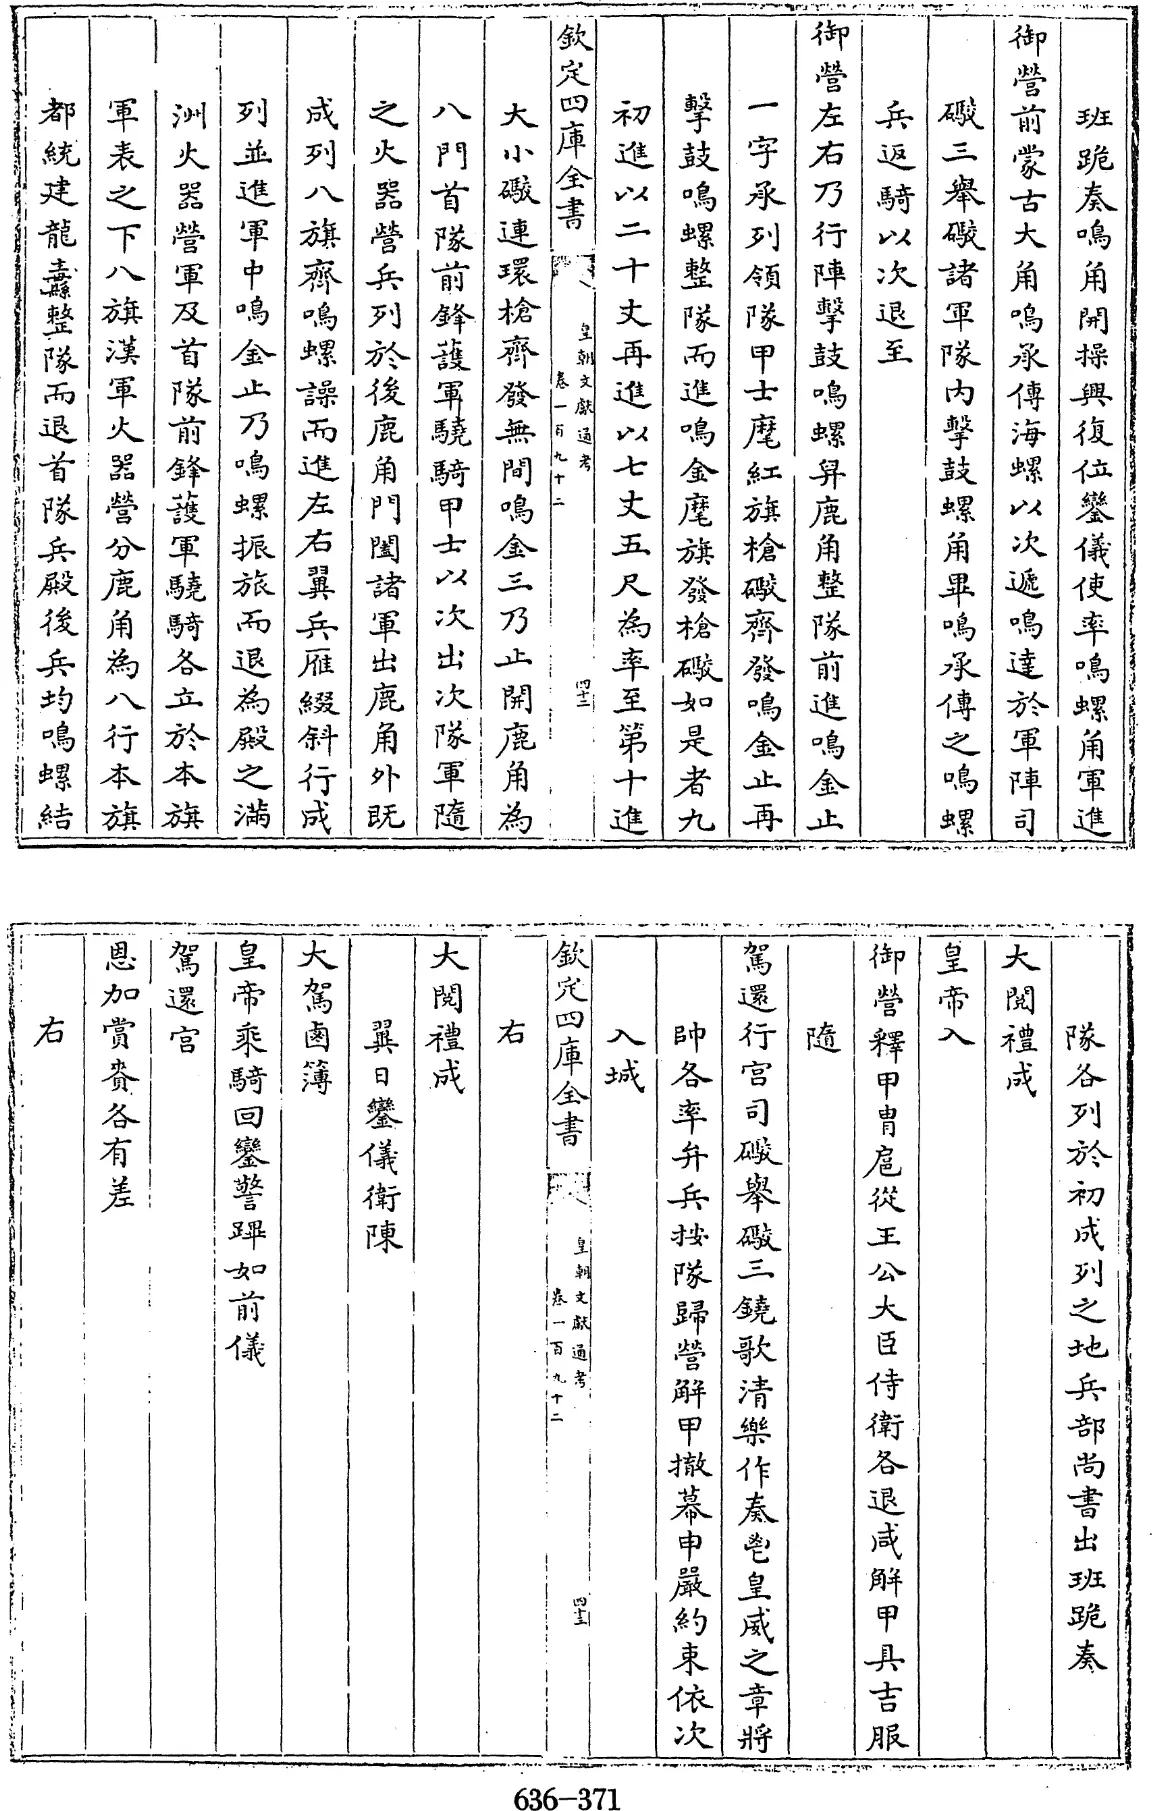 班跪奏鳴角開操興復位鑾儀使率鳴螺角軍進
御營前蒙古大角鳴承傳海螺以次遞鳴達於軍陣司
礮三舉礮諸軍隊內擊鼓螺角畢鳴承傳之鳴螺
兵返騎以次退至
御營左右乃行陣擊鼓鳴螺舁鹿角整隊前進鳴金止
一字承列領隊甲士麾紅旗槍礮齊發鳴金止再
擊鼓鳴螺整隊而進鳴金麾旗發槍礮如是者九
初進以二十丈再進以七丈五尺為率至第十進
欽定四庫全書
皇朝文獻通考
卷一百九十二
四十三
大小礮連環槍齊發無間鳴金三乃止開鹿角為
八門首隊前鋒護軍驍騎甲士以次出次隊軍隨
之火器營兵列於後鹿角門闔諸軍出鹿角外既
成列八旗齊鳴螺譟而進左右翼兵雁綴斜行成
列並進軍中鳴金止乃鳴螺振旅而退為殿之滿
洲火器營軍及首隊前鋒護軍驍騎各立於本旗
軍表之下八旗漢軍火器營分鹿角為八行本旗
都統建龍纛整隊而退首隊兵殿後兵均鳴螺結
隊各列於初成列之地兵部尚書出班跪奏
大閱禮成
皇帝入
御營釋甲冑扈從王公大臣侍衛各退咸解甲具吉服
隨
駕還行宮司礮舉礮三鐃歌清樂作奏鬯皇威之章將
帥各率弁兵按隊歸營解甲撤幕申嚴約束依次
入城
欽定四庫全書
皇朝文獻通考
卷一百九十二
四十三
右
大閱禮成
翼日鑾儀衛陳
大駕鹵簿
皇帝乘騎回鑾警蹕如前儀
駕還宮
恩加賞賚各有差
右
636-371